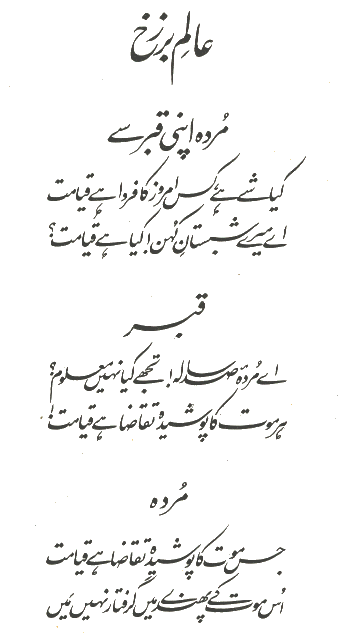 عالمِ برزخ
مُردہ اپنی قبر سے
کیا شے ہے، کس امروز کا فردا ہے قیامت
اے میرے شبستانِ کُہن! کیا ہے قیامت؟
قبر
اے مُردۂ صد سالہ! تجھے کیا نہیں معلوم؟
ہر موت کا پوشیدہ تقاضا ہے قیامت!
مُردہ
جس موت کا پوشیدہ تقاضا ہے قیامت
اُس موت کے پھندے میں گرفتار نہیں مَیں